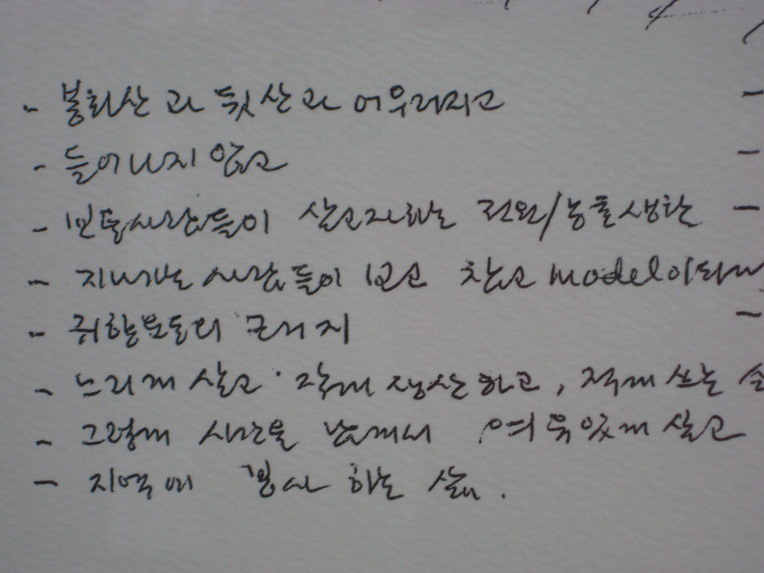 - 봉화산과 뒷산과 어우러지고
- 들어나지 않고
- 보통사람들이 살고자하는 전원/농촌생활
- 지나가는 사람들이 보고 참고 model이 되
- 귀향 의 근거지
- 느리게 살고 작게 생산하고, 적게 쓰는
- 그렇게 시간을 남겨서 여유있게 살고
- 지역에 봉사 하는 삶.